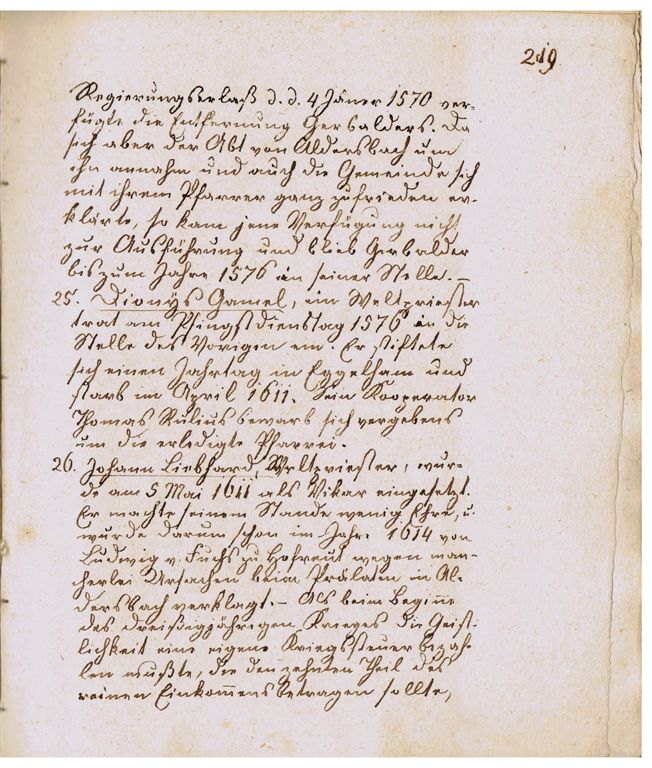 219
Regierungserlaß d. d. 4 Jäner 1570 ver-
fügte die Entfernung Gerbalders. Da
sich aber der Abt von Aldersbach um
ihn annahm und auch die Gemeinde sich
mit ihrem Pfarrer ganz zufrieden er-
klärte, so kam jene Verfügung nicht
zur Ausführung und blieb Gerbalder
bis zum Jahre 1576 an seiner Stelle. –
25. Dionys Gamel, ein Weltpriester
trat am Pfingstdienstag 1576 an die
Stelle des Vorigen ein. Er stiftete
sich einen Jahrtag in Eggelham und
starb im April 1611. Sein Kooperator
Thomas Rulius bewarb sich vergebens
um die erledigte Pfarrei.
26. Johann Liebhard, Weltpriester, wur-
de am 5 Mai 1611 als Vikar eingesetzt.
Er machte seinem Stande wenig Ehre, u.
wurde darum schon im Jahre 1614 von
Ludwig v. Fuchs zu Hofreut wegen man-
cherlei Ursachen beim Prälaten in Al-
dersbach verklagt. – Als beim Beginne
des dreißigjährigen Krieges die Geist-
lichkeit eine eigene Kriegssteuer bezah-
len mußte, die den zehnten Theil des
reinen Einkom̅ens betragen sollte,